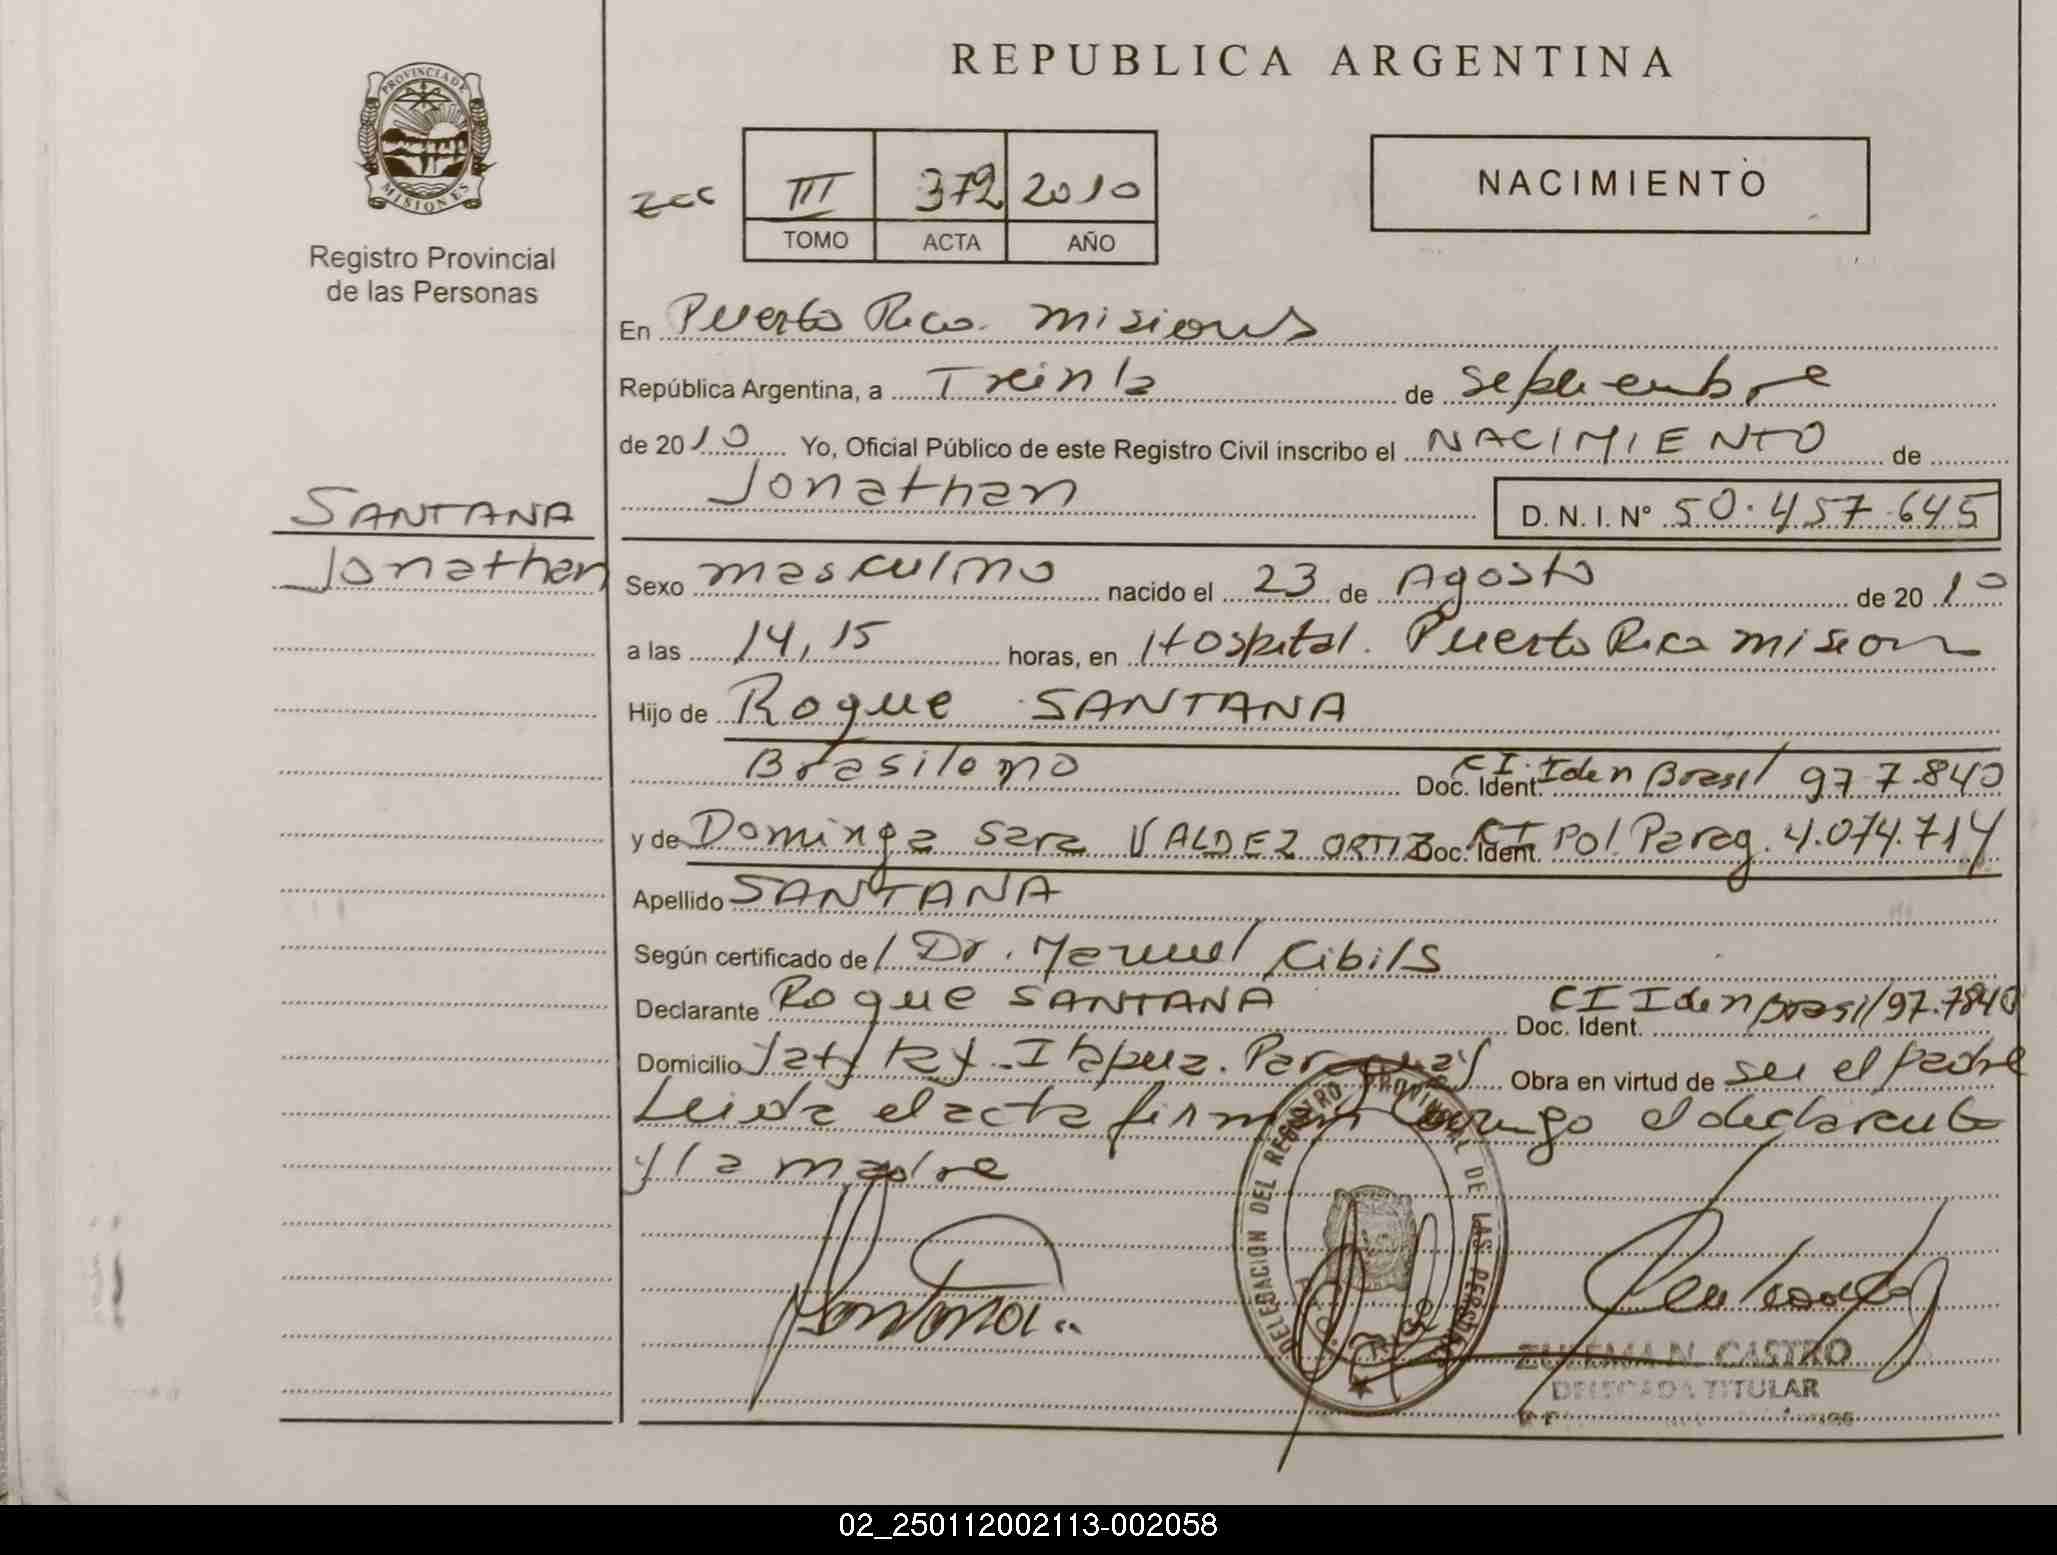 PROVINCIA DE
MISIONES
Registro Provincial
de las Personas
REPUBLICA ARGENTINA
zcc III 372 2010
TOMO ACTA AÑO
NACIMIENTO
En Puerto Rico. misiones
República Argentina, a Treinta de septiembre
de 2010 Yo, Oficial Público de este Registro Civil inscribo el NACIMIENTO de
Jonathan D. N. I. N° 50.457.645
SANTANA
Jonathan
Sexo masculino nacido el 23 de Agosto de 2010
a las 14,15 horas, en Hospital. Puerto Rico mision
Hijo de Roque SANTANA
Brasileno Doc. Ident. CI. Iden Brasil 97.7.840
y de Dominga Sara VALDEZ ORTIZ Doc. Ident. CI Pol Parag. 4.074.714
Apellido SANTANA
Según certificado de / Dr. Manuel Cibils
Declarante Roque SANTANA Doc. Ident. CI Iden Brasil 97.7840
Domicilio Yatytay - Itapua. Paraguay Obra en virtud de ser el padre
Leida el acta firman conmigo el declarante
y la madre
DELEGACION DEL REGISTRO PROVINCIAL DE LAS PERSONAS
PTO. RICO
Santana
ZULEMA N. CASTRO
DELEGADA TITULAR
02_250112002113-002058